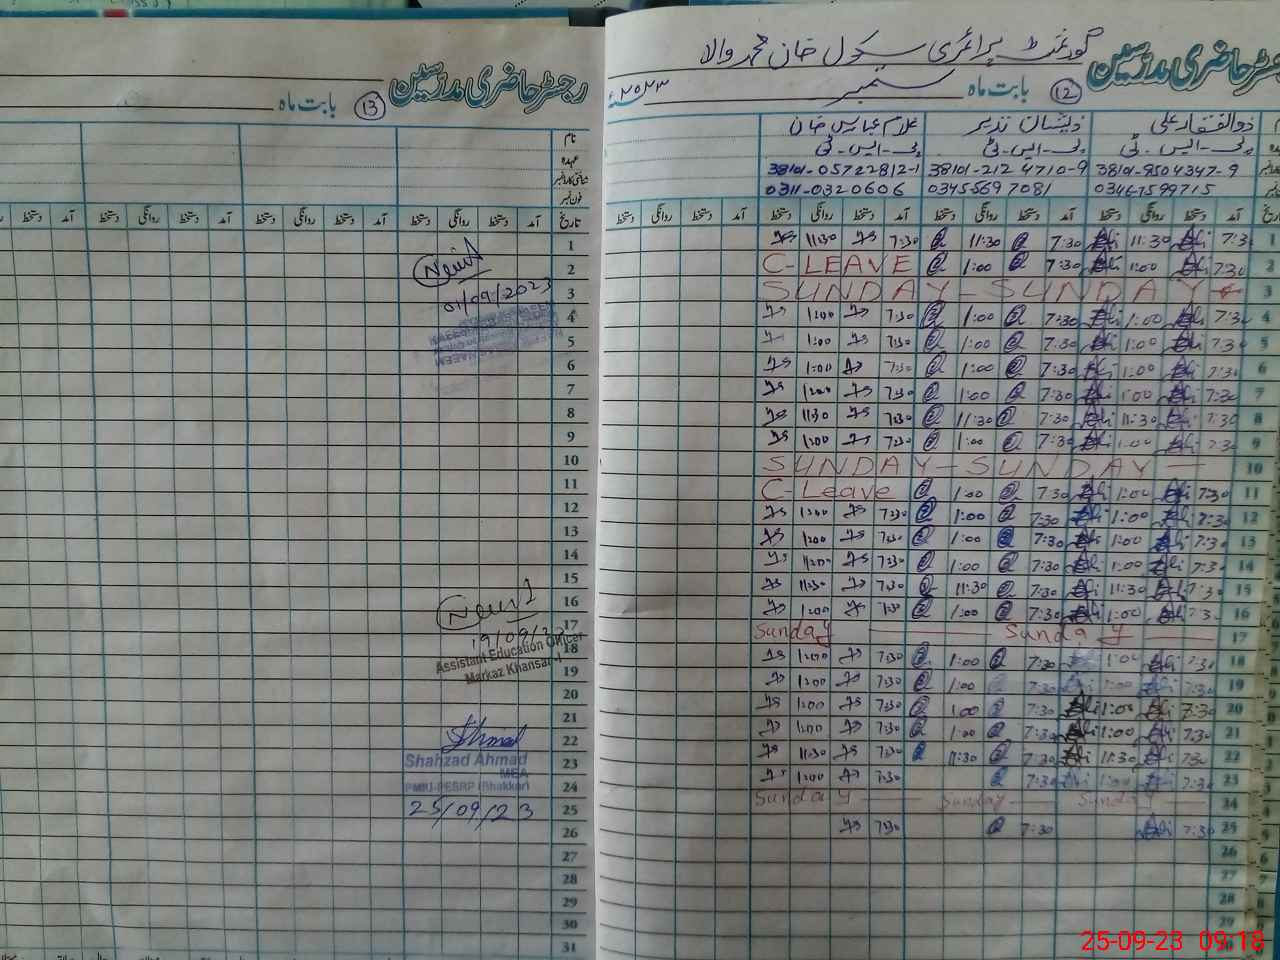 گورنمنٹ پرائمری سکول خان محمد والا
رجسٹر حاضری مدرسین
12 بابت ماہ ستمبر ۲۰۲۳ء
ذوالفقار علی ذیشان نذیر غلام عباس خان
پی-ایس-ٹی پی-ایس-ٹی پی-ایس-ٹی
38101-9504347-9 38101-212 4710-9 38101-05722812-1
03467599715 03455697081 0311-0320606
آمد دستخط روانگی دستخط آمد دستخط روانگی دستخط آمد دستخط روانگی دستخط آمد دستخط روانگی دستخط
1 7:30 Ali 11:30 Ali 7:30 11:30 7:30 11:30
2 7:30 Ali 1:00 Ali 7:30 1:00 C-LEAVE
3 SUNDAY - SUNDAY
4 7:30 Ali 1:00 Ali 7:30 1:00 7:30 1:00
5 7:30 Ali 1:00 Ali 7:30 1:00 7:30 1:00
6 7:30 Ali 1:00 Ali 7:30 1:00 7:30 1:00
7 7:30 Ali 1:00 Ali 7:30 1:00 7:30 1:00
8 7:30 Ali 11:30 Ali 7:30 11:30 7:30 11:30
9 7:30 Ali 1:00 Ali 7:30 1:00 7:30 1:00
10 SUNDAY - SUNDAY -
11 7:30 Ali 1:00 Ali 7:30 1:00 C-Leave
12 7:30 Ali 1:00 Ali 7:30 1:00 7:30 1:00
13 7:30 Ali 1:00 Ali 7:30 1:00 7:30 1:00
14 7:30 Ali 1:00 Ali 7:30 1:00 7:30 1:00
15 7:30 Ali 11:30 Ali 7:30 11:30 7:30 11:30
16 7:30 Ali 1:00 Ali 7:30 1:00 7:30 1:00
17 Sunday Sunday
18 7:30 Ali 1:00 7:30 1:00 7:30 1:00
19 7:30 Ali 1:00 Ali 7:30 1:00 7:30 1:00
20 7:30 Ali 1:00 Ali 7:30 1:00 7:30 1:00
21 7:30 Ali 1:00 Ali 7:30 1:00 7:30 1:00
22 7:30 Ali 11:30 Ali 7:30 11:30 7:30 11:30
23 7:30 Ali 1:00 Ali 7:30 7:30 1:00
24 Sunday Sunday Sunday
25 7:30 Ali 7:30 7:30
26
27
28
29
رجسٹر حاضری مدرسین
13 بابت ماہ
نام
عہدہ
شناختی کارڈ نمبر
فون نمبر
تاریخ آمد دستخط روانگی دستخط آمد دستخط روانگی دستخط آمد دستخط روانگی دستخط آمد دستخط روانگی دستخط
1
2
3 01/09/2023
4
5
6
7
8
9
10
11
12
13
14
15
16
17
18 Assistant Education Officer
19 Markaz Khansar
20
21
22 Ahmad
23 Shahzad Ahmad
MEA
24 PMIU-PESRP (Bhakkar)
25 25/09/23
26
27
28
29
30
31
25-09-23 09:18